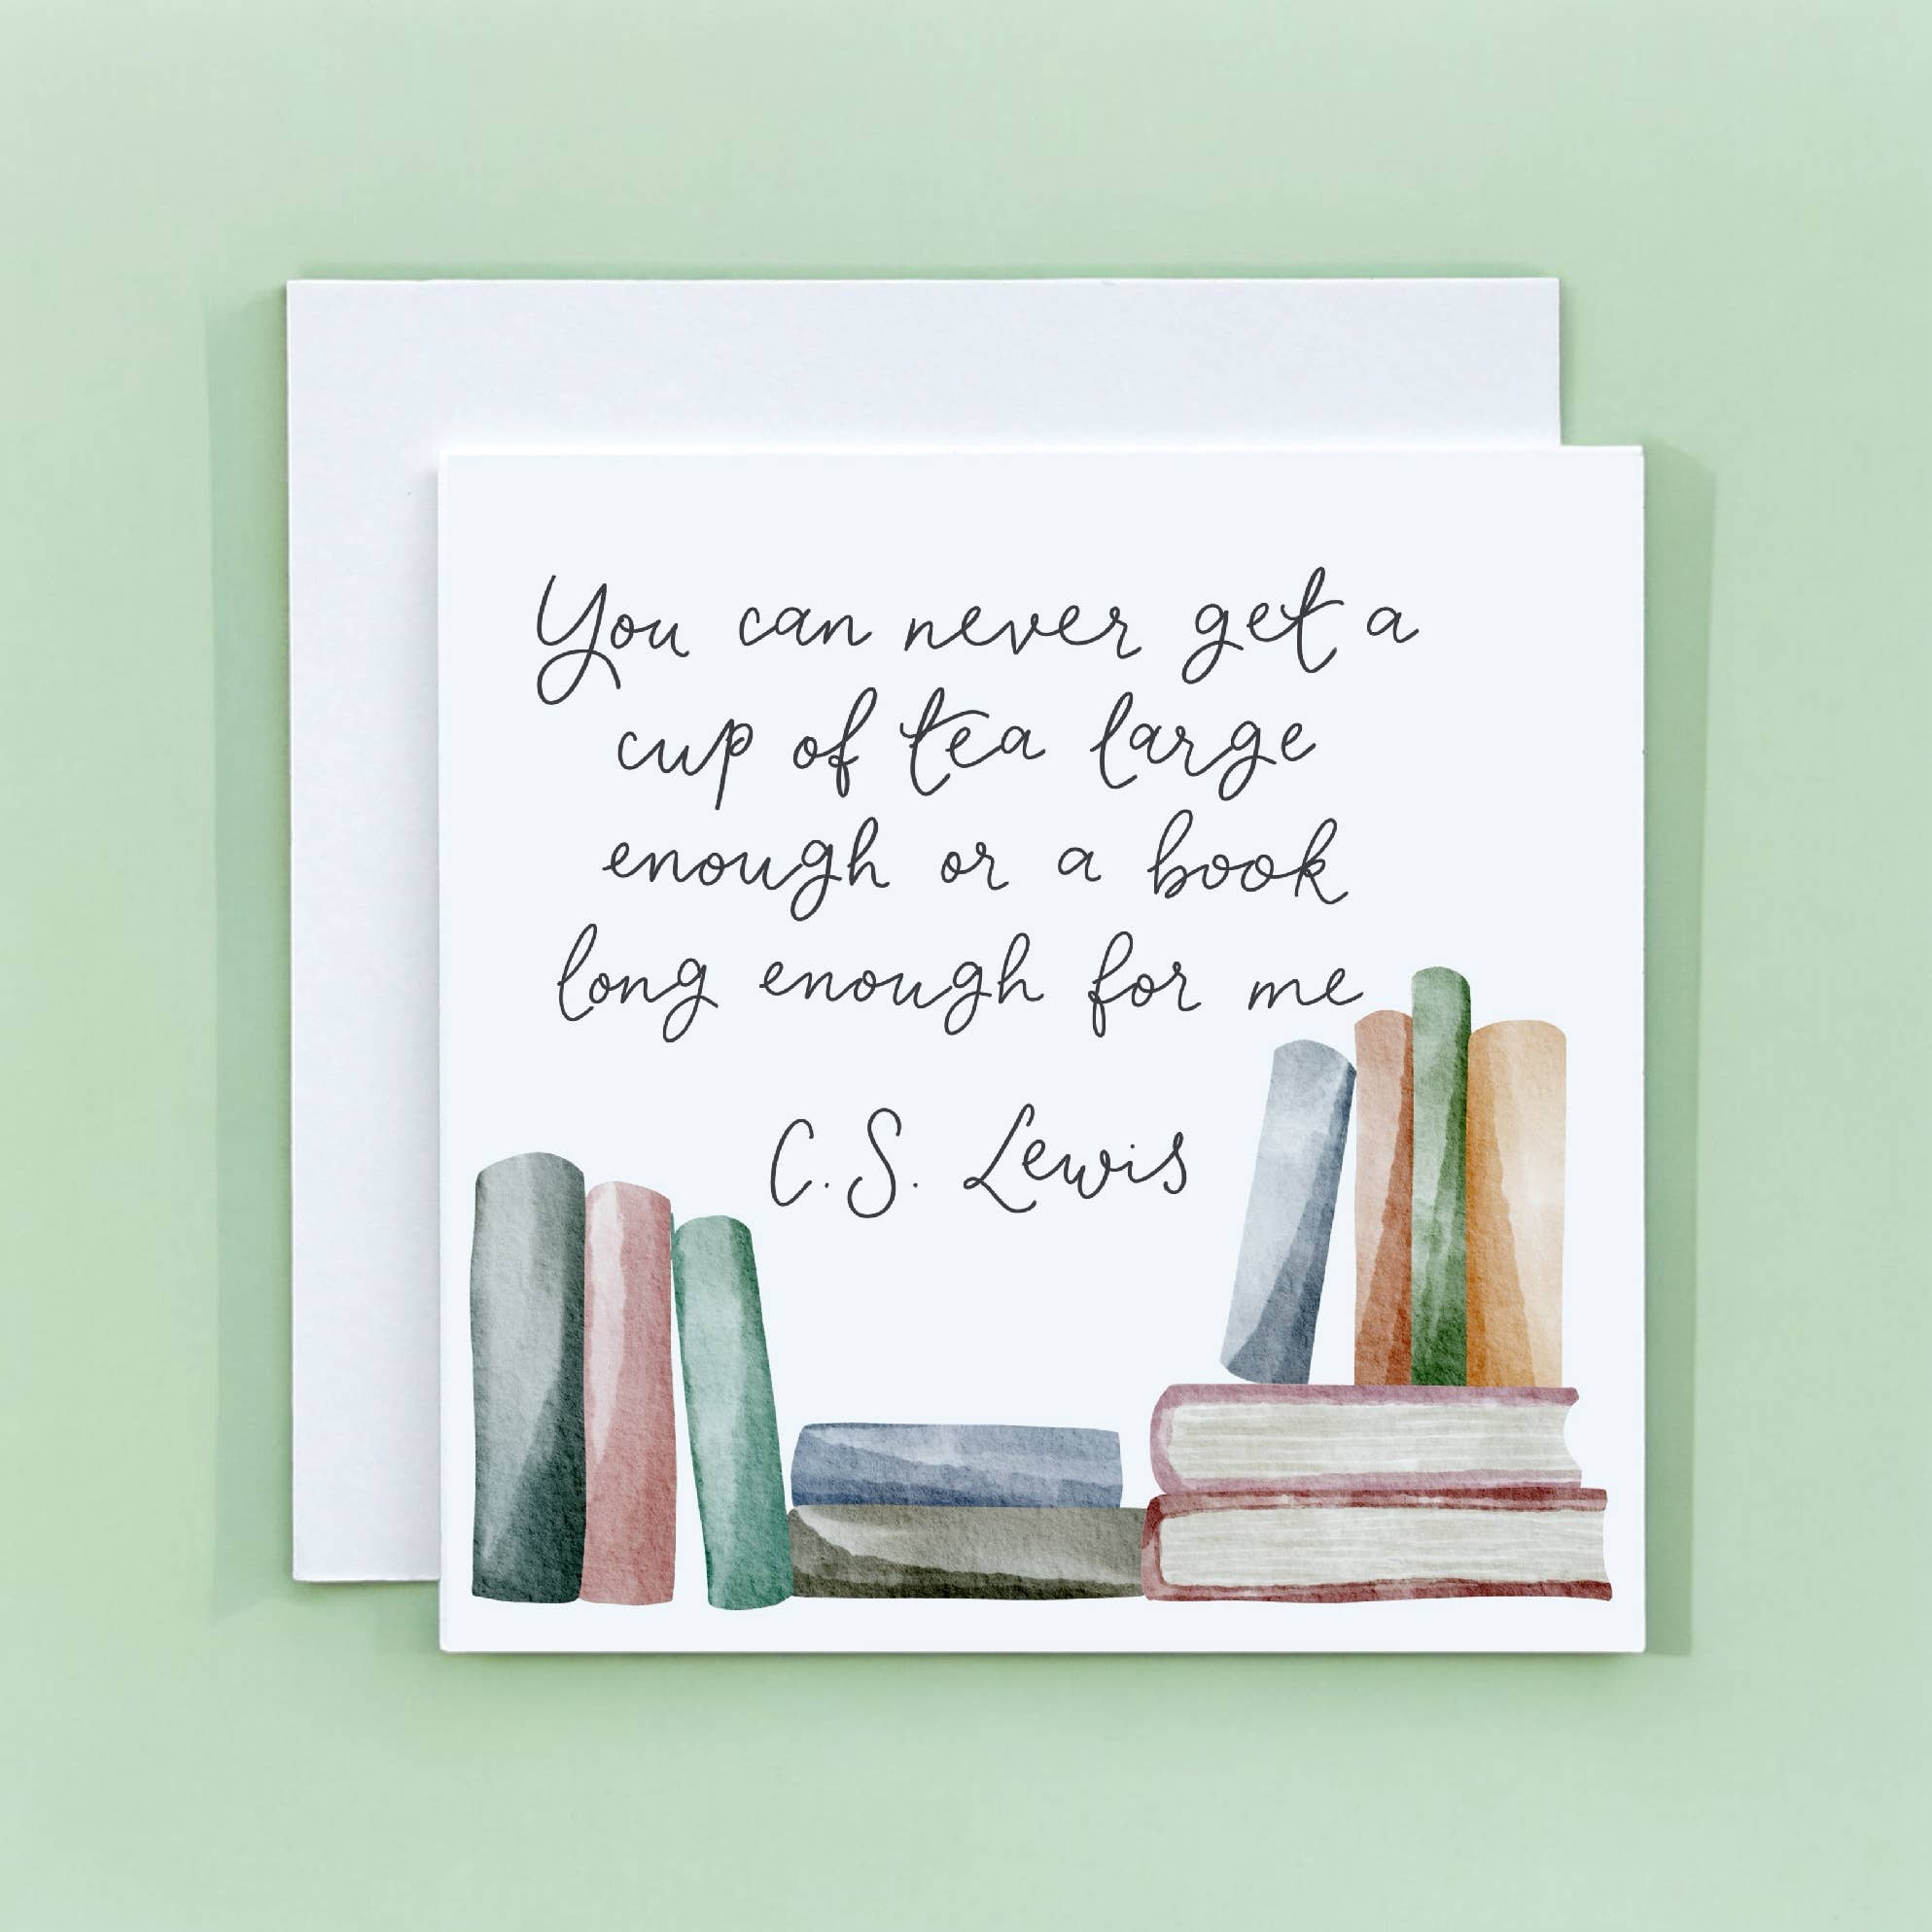 You can never get a
cup of tea large
enough or a book
long enough for me
C.S. Lewis